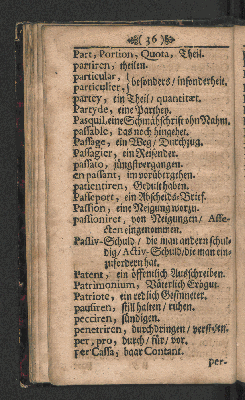 ( 36 )
Part, Portion, Quota, Theil.
partiren, theilen.
particular,
particulier, } besonders / insonderheit.
partey, ein Theil / quantitæt.
Partyde, eine Parthey.
Pasquil, eine Schmähschrift ohn Nahm.
passable, das noch hingehet.
Passage, ein Weg / Durchzug.
Passagier, ein Reisender.
passato, jüngstvergangen.
en passant, im vorübergehen.
patientiren, Gedult haben.
Passeport, ein Abscheids-Brief.
Passion, eine Neigung worzu.
passioniret, von Neigungen / Affe-
cten eingenommen.
Passiv-Schuld / die man andern schul-
dig / Activ-Schuld / die man ein-
zufordern hat.
Patent, ein öffentlich Ausschreiben.
Patrimonium, Väterlich Erbgut.
Patriote, ein redlich Gesinneter.
pausiren, still halten / ruhen.
pecciren, sündigen.
penetriren, durchdringen / verstehen.
per, pro, durch / für / vor.
per Cassa, baar Contant.
per-